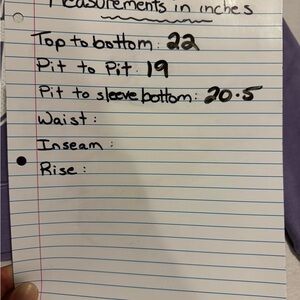 Measurements in inches
Top to bottom: 22
Pit to Pit: 19
Pit to sleeve bottom: 20.5
Waist:
Inseam:
Rise: